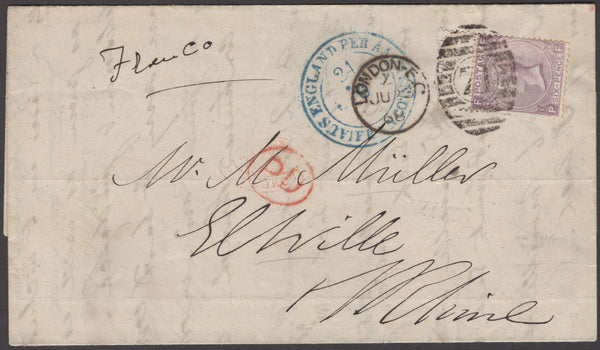 Franco
AUS ENGLAND PER A
FRANCO
LONDON-E.C
JU
66
POSTAGE
SIX PENCE
F
P
PD
Mr. M. Müller
Eltville
a/Rhine